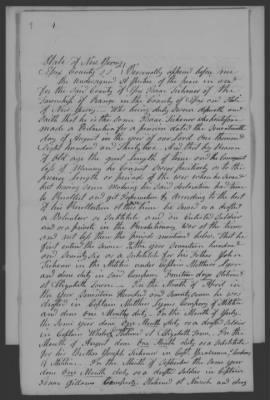 State of New Jersey
Essex County SS Personally appeared before me
the undersigned A Justice of the peace in and
for the said County of Essex Isaac Sickener of the
Township of Orange in the County of Essex and State
of New Jersey - Who being duly Sworn deposeth and
saith that he is the same Isaac Sickener who heretofore
made a Declaration for a pension dated the
day of August in the year of our Lord one thousand
Eight hundred and Thirty two. And that by reason
of Old age the great length of time and the Consequent
loss of Memory he cannot Swear positively as to the
precise length or period of
but having since Making his said declaration had time
to Recollect and get Information & According to the best
of his Recollection
a Volunteer or Substitute and an Enlisted Soldier
and as a private in the Revolutionary War at the times
and not less than the periods mentioned below, that he
first entered the same in the year Seventeen hundred
and Seventy six as a Substitute for his Father
Sickener in the Militia under Captain Matthew Lyon
and done duty in said Company fourteen days Stationed
at Elizabeth Town - In the Month of April in
the year Seventeen Hundred and Seventy Seven he was
drafted in Captain Mathew Lyons Company of Militia
and done one Months duty. In the Month of July
the same year done One Month duty as a drafted Soldier
in Captain Stationed at Elizabeth Town. In the
Month of August done One Month duty as a Substitute
for his Brother Joseph Sickener in Capt.
of Militia. In the Month of September the same year
done One Month duty as a drafted Soldier in Captain
Isaac Gillams Company Stationed at Newark and